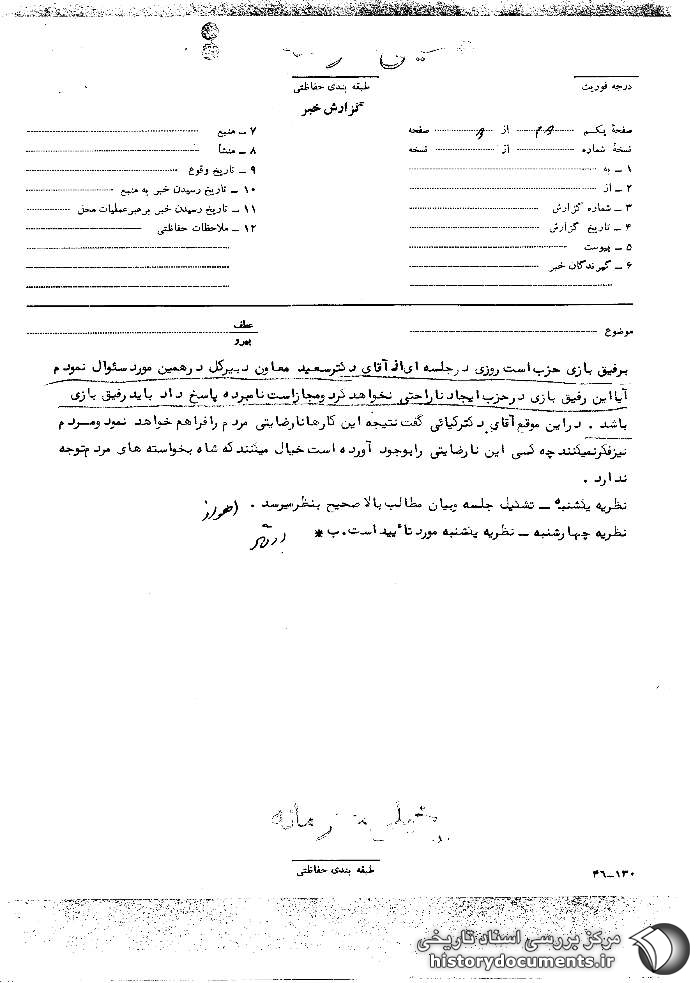 درجه فوریت
طبقه بندی حفاظتی
گزارش خبر
صفحهٔ یکم از صفحه
نسخهٔ شماره از نسخه
۱ ــ به
۲ ــ از
۳ ــ شماره گزارش
۴ ــ تاریخ گزارش
۵ ــ پیوست
۶ ــ گیرندگان خبر
۷ ــ منبع
۸ ــ منشأ
۹ ــ تاریخ وقوع
۱۰ ــ تاریخ رسیدن خبر به منبع
۱۱ ــ تاریخ رسیدن خبر برهبر عملیات محل
۱۲ ــ ملاحظات حفاظتی
موضوع
عطف
پیرو
برفیق بازی حزب است روزی درجلسه ای از آقای دکترسعید معاون دبیرکل درهمین مورد سئوال نمودم
آیا این رفیق بازی درحزب ایجاد ناراحتی نخواهد کرد ومجازاست نامبرده پاسخ داد باید رفیق بازی
باشد . دراین موقع آقای دکترکیائی گفت نتیجه این کارها نارضایتی مردم رافراهم خواهد نمود ومردم
نیزفکرنمیکنند چه کسی این نارضایتی رابوجود آورده است خیال میکنند که شاه بخواسته های مردم توجه
ندارد .
نظریه یکشنبه ــ تشکیل جلسه وبیان مطالب بالا صحیح بنظرمیرسد . اهواز
نظریه چهارشنبه ــ نظریه یکشنبه مورد تأیید است. ب *
طبقه بندی حفاظتی
۴۶ــ۱۳۰
مرکز بررسی اسناد تاریخی
historydocuments.ir